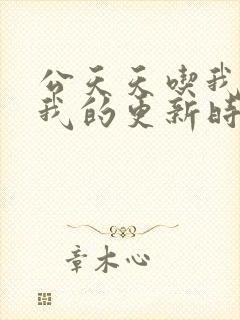 公天天喫我
我的更新時
章木心